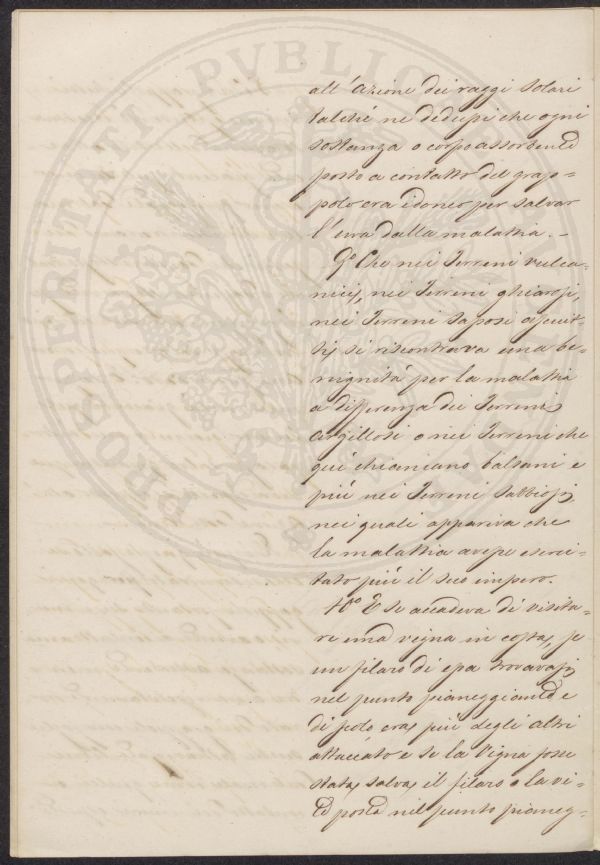 all'azione dei raggi solari
talché ne dedussi che ogni
sostanza o corpo assorbente
posto a contatto del grap=
polo era idoneo per salvar
l'uva dalla malattia. -
9.º Che nei Terreni vulca=
nici, nei Terreni ghiarosi,
nei Terreni sassosi asciut=
ti, si riscontrava una be=
nignità per la malattia
a differenza dei Terreni
argillosi o nei Terreni che
qui chiamano balsani e
più nei Terreni sabbiosi,
nei quali appariva che
la malattia avesse eserci=
tato più il suo impero.
10.º E se accadeva di visita=
re una vigna in costa, se
un filaro di essa trovavasi
nel punto pianeggiante e
di solo era più degli altri
attaccato e se la Vigna fosse
stata salva, il filaro o la vi=
te posta nel punto pianeg=
PROSPERITATI PVBLICAE